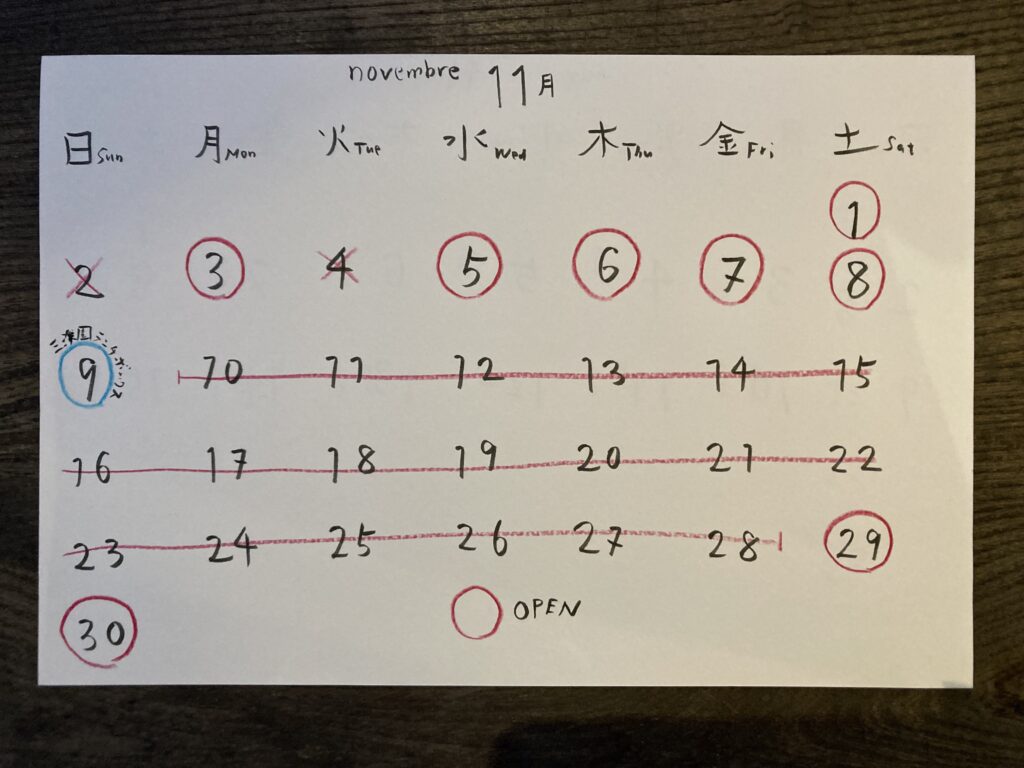 novembre 11月
日Sun 月Mon 火Tue 水Wed 木Thu 金Fri 土Sat
1
2 3 4 5 6 7 8
9 10 11 12 13 14 15
16 17 18 19 20 21 22
23 24 25 26 27 28 29
30 OPEN